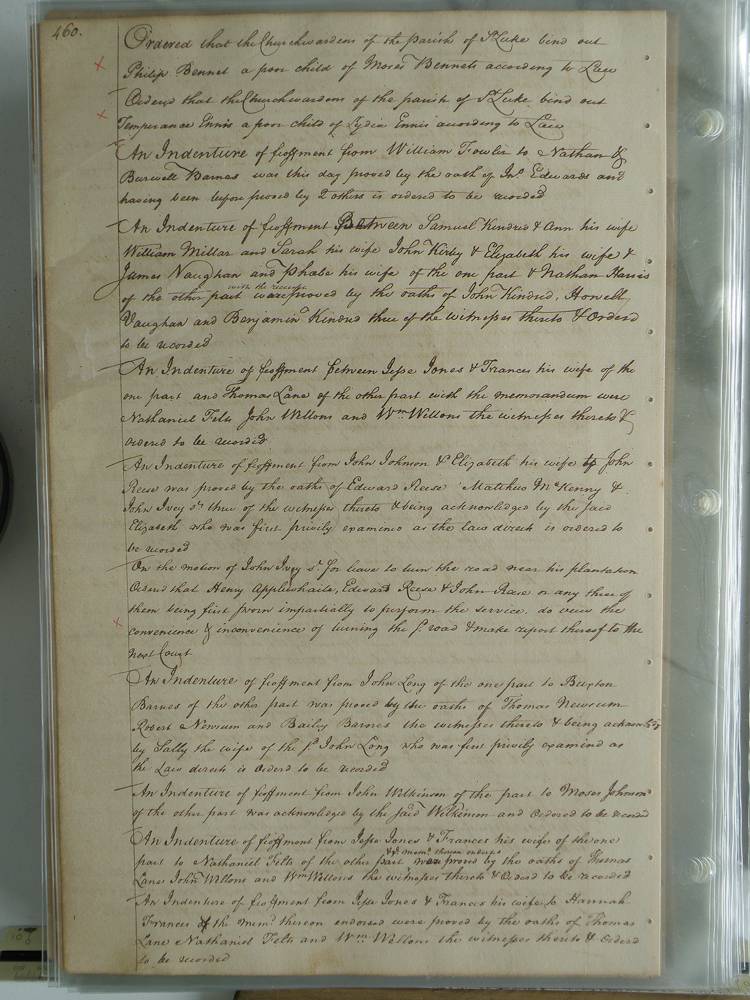 460.
Ordered that the Churchwardens of the parish of St Luke bind out
Philip Bennet a poor child of Moses Bennets according to Law
Ordered that the Churchwardens of the parish of St Luke bind out
Temperance Ennis a poor child of Lydia Ennis according to Law
An Indenture of feoffment from William Fowler to Nathan &
Burwell Barnes was this day proved by the oath of Jno Edwards and
having been before proved by 2 others is ordered to be recorded
An Indenture of feoffment Between Samuel Kindred & Ann his wife
William Millar and Sarah his wife John Kirby & Elizabeth his wife &
James Vaughan and Phebe his wife of the one part & Nathan Harris
with the receipt
of the other part were proved by the oaths of John Kindred, Howell
Vaughan and Benjamin Kindred three of the witnesses thereto & Orderd
to be recorded
An Indenture of feoffment between Jesse Jones & Frances his wife of the
one part and Thomas Lane of the other part with the memorandum were
Nathaniel Felts John Wellons and Wm Wellons the witnesses thereto &
ordered to be recorded
An Indenture of feoffment from John Johnson & Elizabeth his wife to John
Reese was proved by the oaths of Edward Reese Matthew McKenny &
John Ivey sr three of the witnesses thereto & being acknowledged by the said
Elizabeth who was first privily examined as the law directs is ordered to
be recorded
On the motion of John Ivey sr for leave to turn the road near his plantation
Orderd that Henry Applewhaite, Edward Reese & John Reese or any three of
them being first sworn impartially to perform the service do view the
convenience & inconvenience of turning the sd road & make report thereof to the
next Court
An Indenture of feoffment from John Long of the one part to Burton
Barnes of the other part was proved by the oaths of Thomas Newsum
Robert Newsum and Bailey Barnes the witnesses thereto & being acknowledg
by Sally the wife of the sd John Long who was first privily examined as
the Law directs is orderd to be recorded
An Indenture of feoffment from John Wilkinson of the part to Moses Johnson
of the other part was acknowledged by the said Wilkinson and Ordered to be recorded
An Indenture of feoffment from Jesse Jones & Frances his wife of the one
& ye memo thereon endorsed
part to Nathaniel Felts of the other part were proved by the oaths of Thomas
Lane John Wellons and Wm Wellons the witnesses thereto & Orderd to be recorded
An Indenture of feoffment from Jesse Jones & Frances his wife to Hannah
Frances & the memo thereon endorsed were proved by the oaths of Thomas
Lane Nathaniel Felts and Wm Wellons the witnesses thereto & Orderd
to be recorded